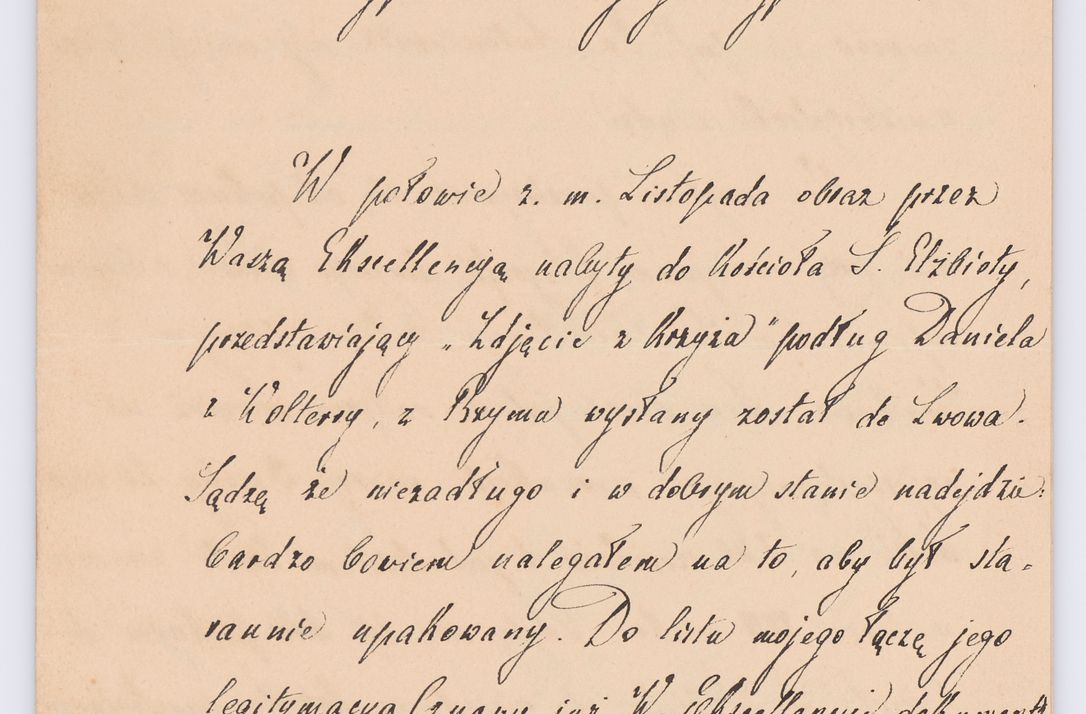 W połowie z. m. Listopada obraz przez
Waszą Ekscellencyą nabyty do kościoła S. Elżbiety,
przedstawiający „Zdjęcie z krzyża" podług Daniela
z Volterry, z Rzymu wysłany został do Lwowa.
Sądzę że niezadługo i w dobrym stanie nadejdzie:
bardzo bowiem nalegałem na to, aby był sta-
rannie upakowany. Do listu mojego łączę jego